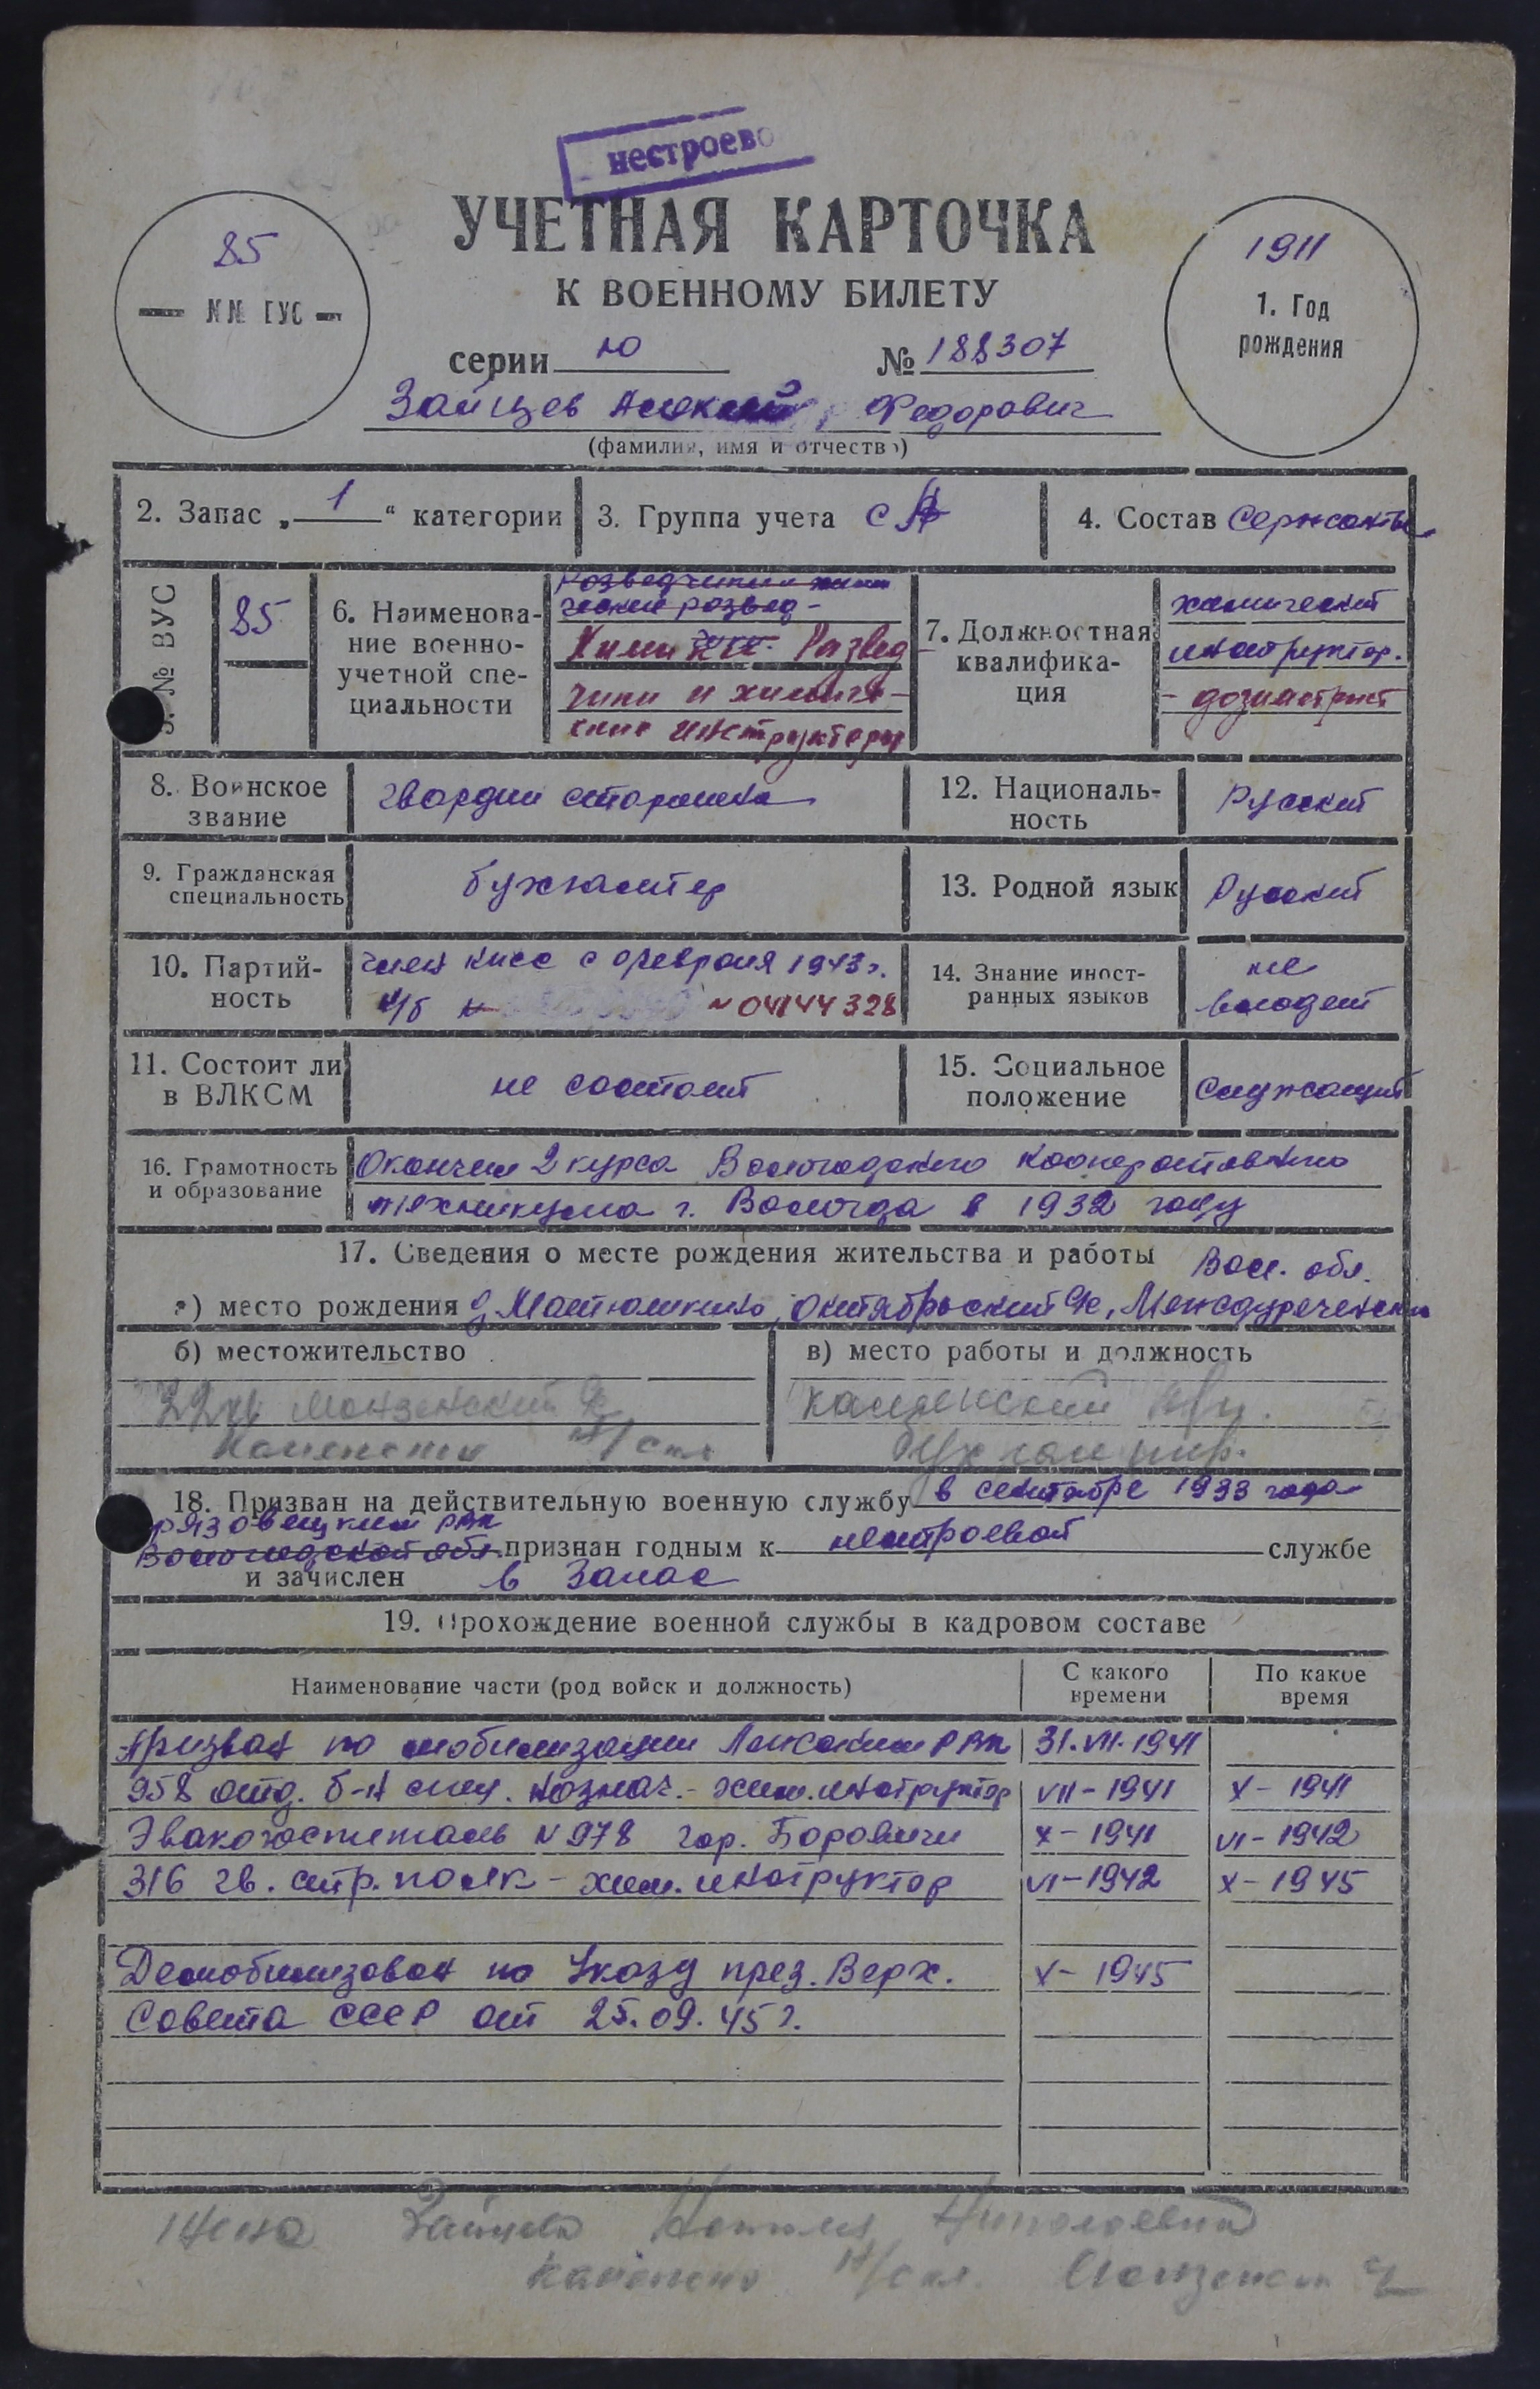 нестроево
УЧЕТНАЯ КАРТОЧКА
К ВОЕННОМУ БИЛЕТУ
85
— №№ ГУС —
1911
1. Год
рождения
серии ю № 188307
Зайцев Алексей Федорович
(фамилия, имя и отчество)
2. Запас „ 1 “ категории
3. Группа учета СА
4. Состав Сержанты
5. № ВУС
85
6. Наименова-
ние военно-
учетной спе-
циальности
Разведчики хими
ческие развед-
Химики. Развед
чики и химиче-
ские инструкторы
7. Должностная
квалифика-
ция
химический
инструктор.
- дозиметрист
8. Воинское
звание
гвардии старшина
12. Националь-
ность
Русский
9. Гражданская
специальность
бухгалтер
13. Родной язык
Русский
10. Партий-
ность
член КПСС с февраля 1943г.
п/б № № 04144328
14. Знание иност-
ранных языков
не
владеет
11. Состоит ли
в ВЛКСМ
не состоит
15. Социальное
положение
Служащий
16. Грамотность
и образование
Окончил 2 курса Вологодского кооперативного
техникума г. Вологда в 1932 году
17. Сведения о месте рождения жительства и работы Вол. обл.
а) место рождения д. Матюшкино, Октябрьский с/с, Междуреченский
б) местожительство
в) место работы и должность
Каменка
бухгалтер.
18. Призван на действительную военную службу в сентябре 1933 года
Грязовецким РВК
Вологодской обл. признан годным к нестроевой службе
и зачислен в запас
19. Прохождение военной службы в кадровом составе
Наименование части (род войск и должность)
С какого
времени
По какое
время
Призван по мобилизации РВК 31.VII.1941
958 отд. б-н спец. назнач. - хим. инструктор VII - 1941 X - 1941
Эвакогоспиталь № 978 гор. Боровичи X - 1941 VI - 1942
316 гв. стр. полк - хим. инструктор VI - 1942 X - 1945
Демобилизован по Указу през. Верх. X - 1945
Совета СССР от 25.09.45 г.
Жена Зайцева Николаевна